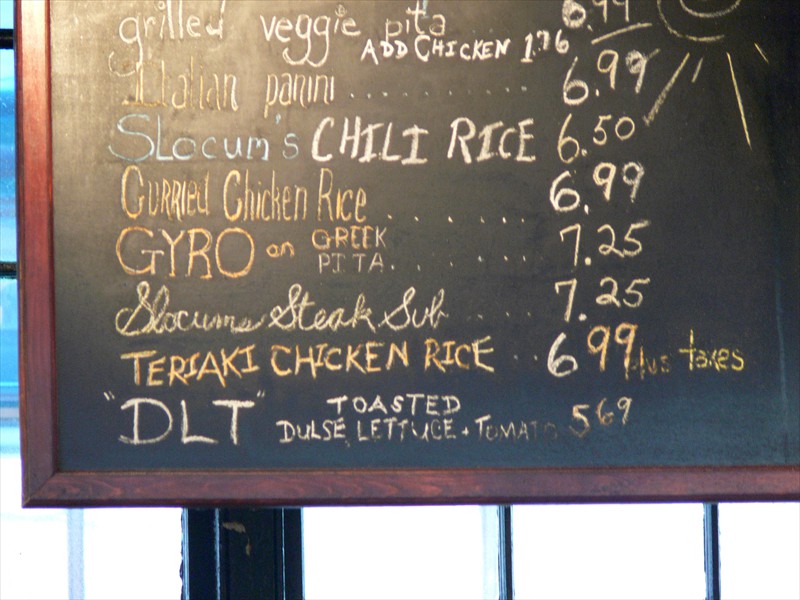 grilled veggie pita 6.99
ADD CHICKEN 1.76
Italian panini .......... 6.99
SLOCUM'S CHILI RICE 6.50
CURRIED Chicken Rice ...... 6.99
GYRO on GREEK PITA ...... 7.25
Slocums Steak Sub .... 7.25
TERIAKI CHICKEN RICE .. 6 99 plus taxes
"DLT" TOASTED DULSE, LETTUCE + TOMATO 5 69